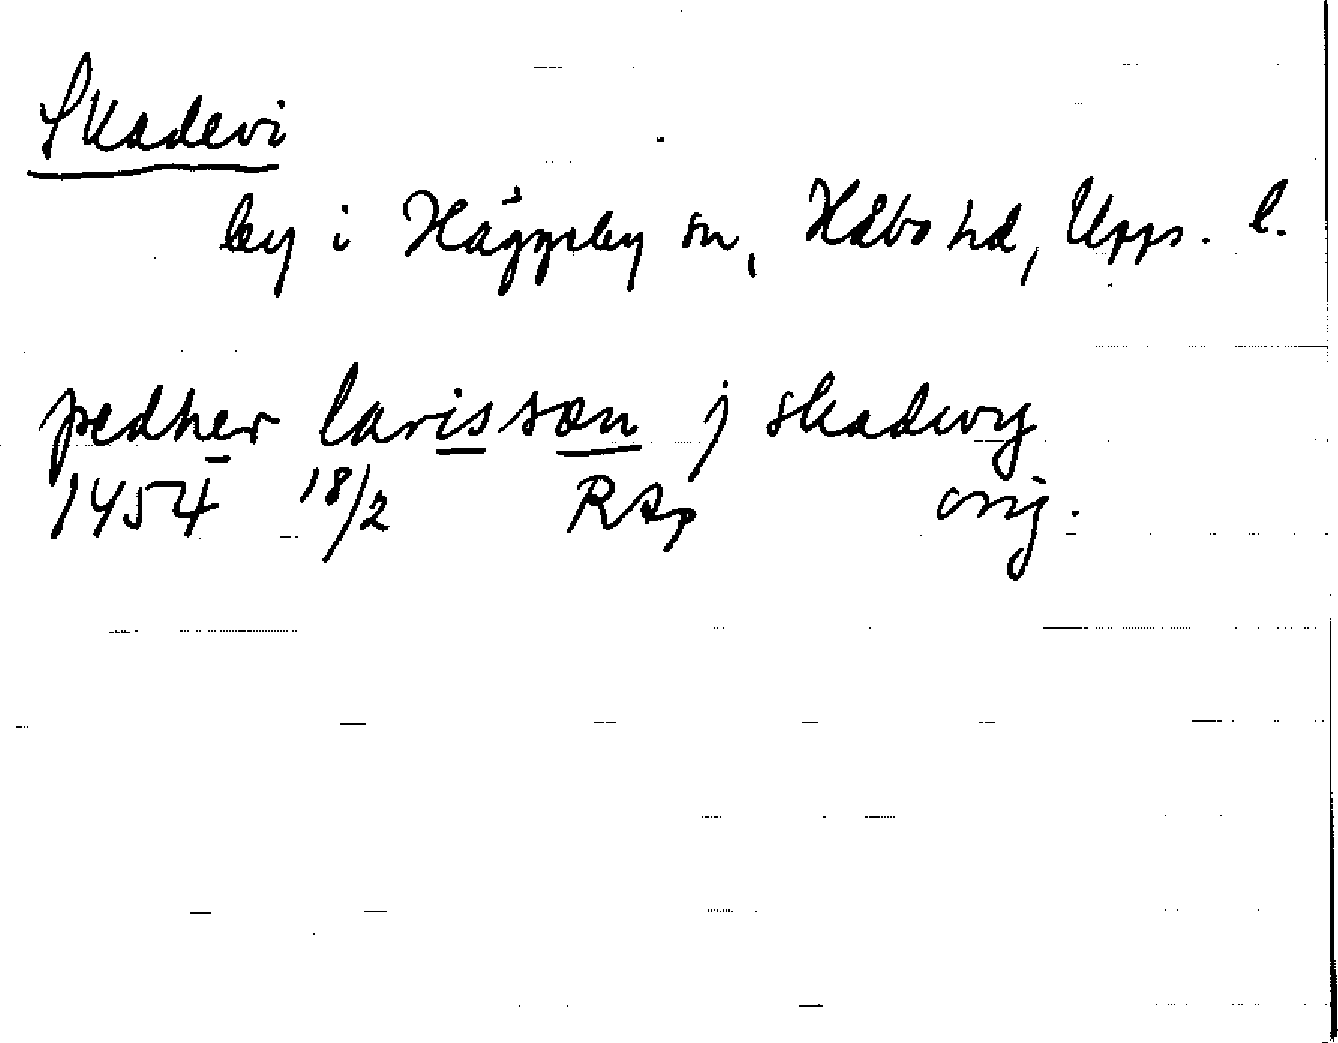 Skadevi
by i Häggeby sn, Håbo hd, Upps. l.
pedher larisson j skadwy
1454 18/2 RAp orig.